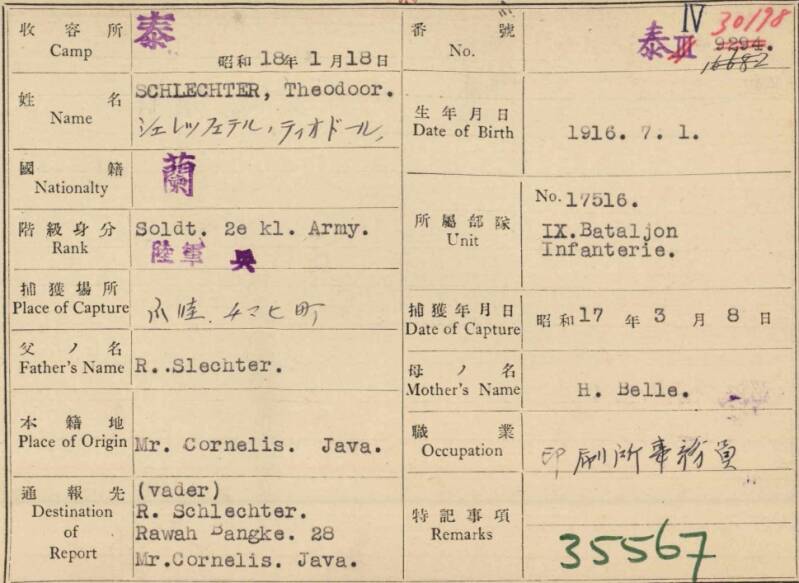 收容所
Camp
泰
昭和 18年 1月 18日
番號
No.
泰 III IV
9294.
16682
30198
姓名
Name
SCHLECHTER, Theodoor.
シェレッフェテル、ティオドール、
生年月日
Date of Birth
1916. 7. 1.
國籍
Nationalty
蘭
階級身分
Rank
Soldt. 2e kl. Army.
陸軍 兵
所屬部隊
Unit
No. 17516.
IX.Bataljon
Infanterie.
捕獲場所
Place of Capture
チマヒ町
捕獲年月日
Date of Capture
昭和 17 年 3 月 8 日
父ノ名
Father's Name
R..Slechter.
母ノ名
Mother's Name
H. Belle.
本籍地
Place of Origin
Mr. Cornelis. Java.
職業
Occupation
印刷所事務員
通報先
Destination
of
Report
(vader)
R. Schlechter.
Rawah Bangke. 28
Mr.Cornelis. Java.
特記事項
Remarks
35567